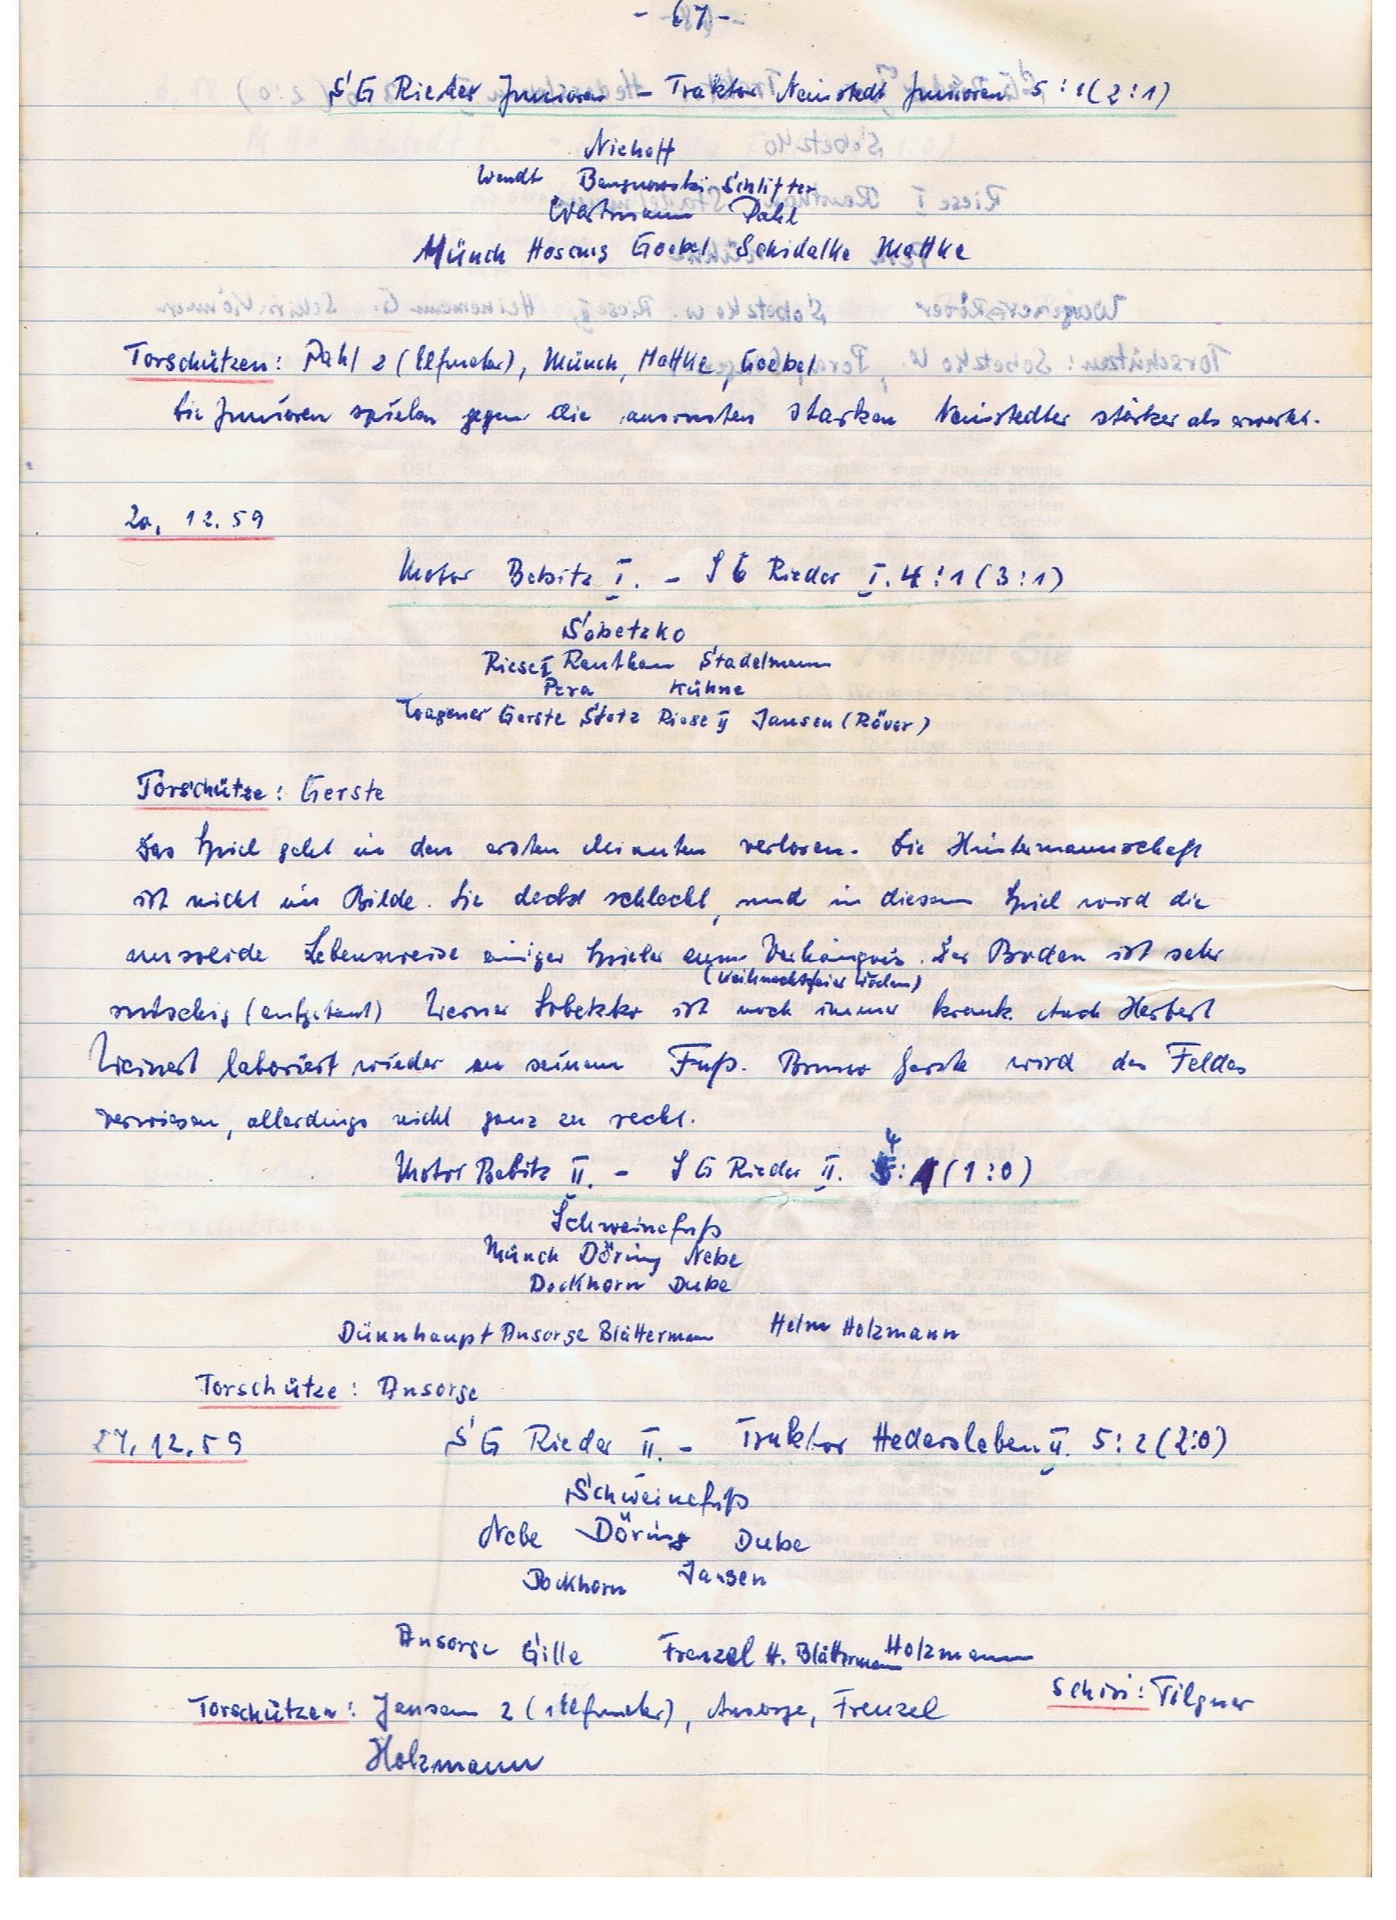 - 67 -
SG Rieder Junioren - Traktor Neinstedt Junioren 5:1 (2:1)
Niehoff
Wendt Schlitter
Wartmann Pahl
Münch Hosang Goebel Schidalke Mattke
Torschützen: Pahl 2 (Elfmeter), Münch, Mattke, Goebel
Die Junioren spielen gegen die starken Neinstedter stärker als erwartet.
20.12.59
Motor Bebitz I. - SG Rieder I. 4:1 (3:1)
Sobetzko
Riese I Rauthan Stadelmann
Pera Kühne
Wagener Gerste Stotz Riese II Jansen (Röver)
Torschütze: Gerste
Das Spiel geht in den ersten Minuten verloren. Die Hintermannschaft
ist nicht im Bilde. Sie deckt schlecht, und in diesem Spiel wird die
unsolide Lebensweise einiger Spieler zum Verhängnis. Der Boden ist sehr
(Weihnachtsfeier)
rutschig (aufgetaut) Werner Sobetzko ist noch immer krank. Auch Herbert
Weinert laboriert wieder an seinem Fuß. Bruno Gerste wird des Feldes
verwiesen, allerdings nicht ganz zu recht.
Motor Bebitz II. - SG Rieder II. 4:1 (1:0)
Schweinefuß
Münch Döring Nebe
Dockhorn Dube
Dünnhaupt Ansorge Blättermann Helm Holzmann
Torschütze: Ansorge
27.12.59 SG Rieder II. - Traktor Hedersleben II. 5:2 (2:0)
Schweinefuß
Nebe Döring Dube
Dockhorn Jansen
Ansorge Gille Frenzel H. Blättermann Holzmann
Schiri: Tilgner
Torschützen: Jansen 2 (1 Elfmeter), Ansorge, Frenzel
Holzmann